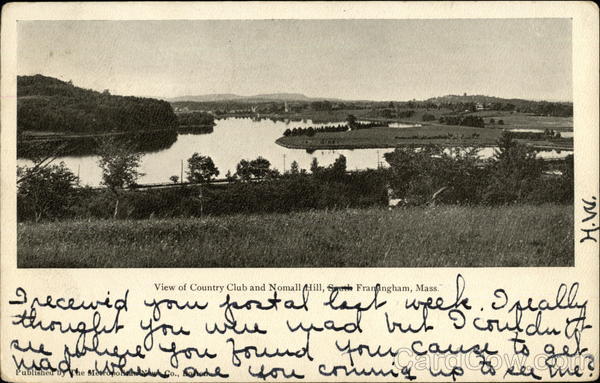 View of Country Club and Nomall Hill, South Framingham, Mass.
M.H.
I received your postal last week. I really
thought you were mad but I couldn't
see where you found your cause to get
mad. When are you coming up to see me?
Published by The Metropolitan News Co., Boston.
CardCow.com